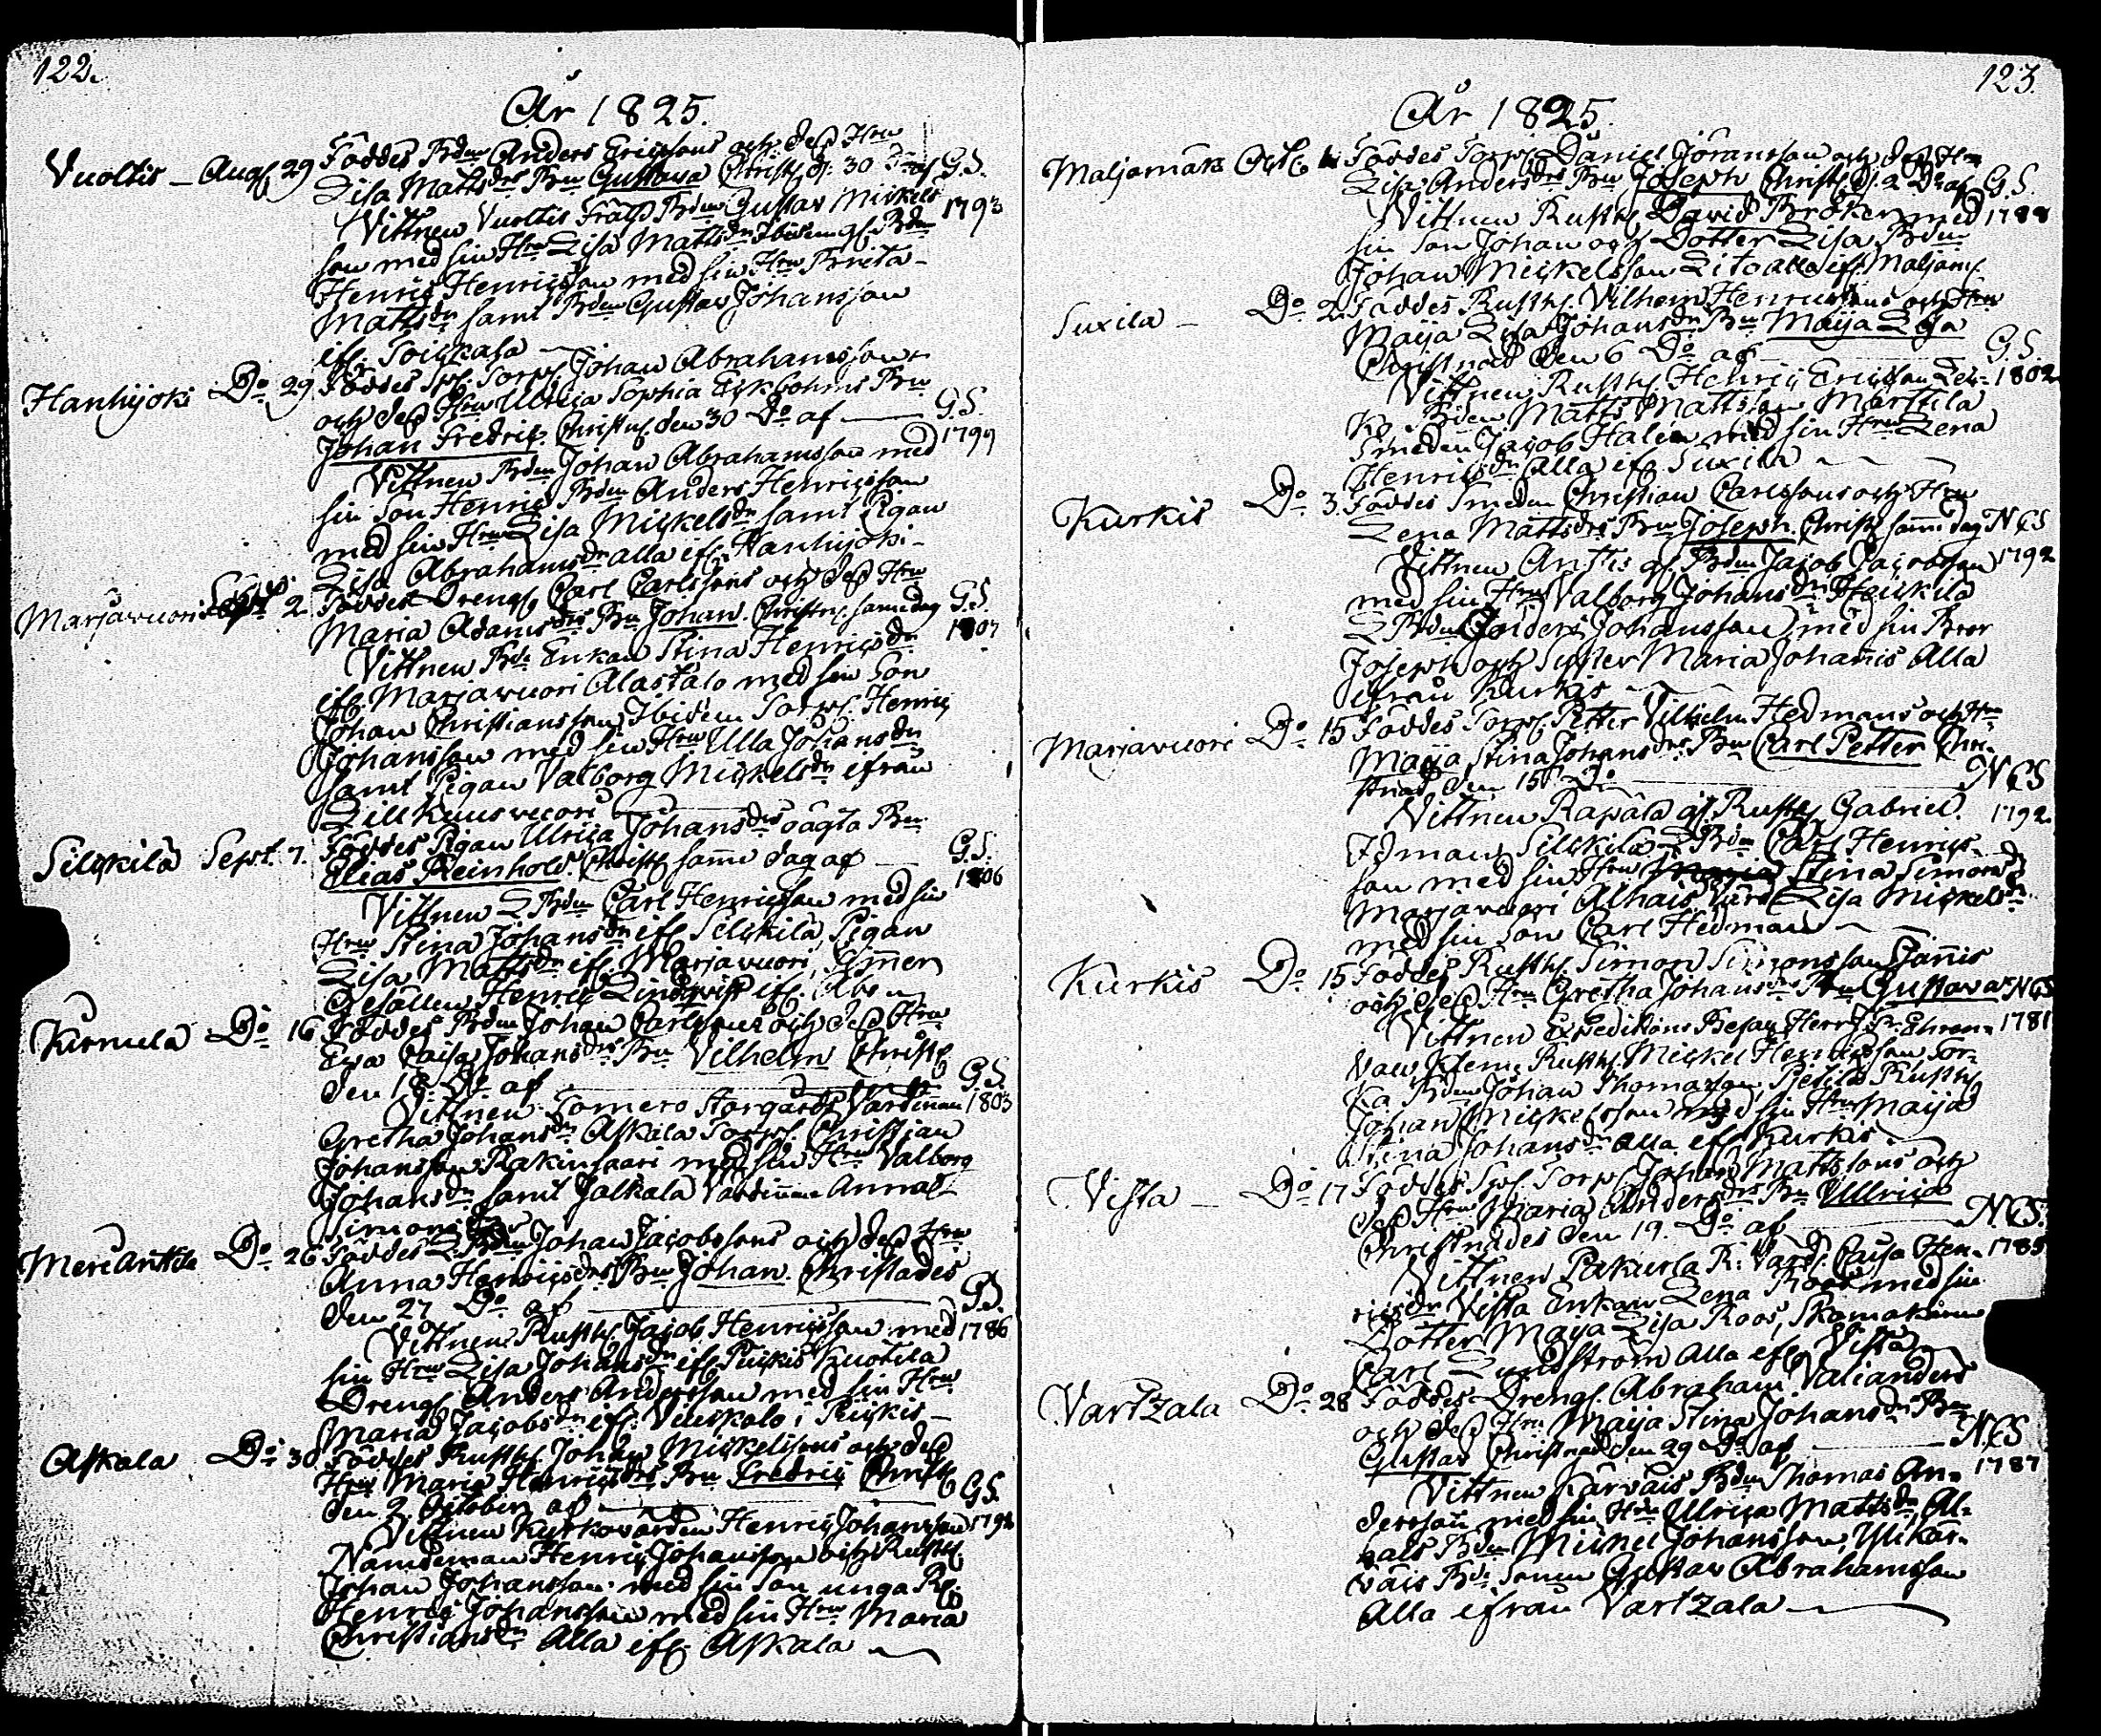 122.
År 1825.
Vuoltis – Aug. 29 Föddes Bden Anders Ericssons och dess Hru
Lisa Mattsdrs Bn Gustava Christs d. 30 G.S.
Vittnen Vuoltis Bden Gustav Mickels 1793
son med sin Hru Lisa Mattsdr Ibidem Bden
Henric Henricsson med sin Hru Brieta
Mattsdr samt Bden Gustav Johansson
ifr. Soickala
Hanhijoki Do 29 Föddes Torp. Johan Abrahamsson
och dess Hru Ulrica Sophia Bn
Johan Fredric. Christn. den 30 Do af G.S.
Vittnen Bden Johan Abrahamsson med 1799
sin Son Henric Bden Anders Henricsson
med sin Hru Lisa Mickelsdr samt Pigan
Lisa Abrahamsdr alla ifr. Hanhijoki –
Marjavuori Sept 2. Föddes Dreng. Carl Carlssons och dess Hru
Maria Adamsdrs Bn Johan. Christn. samedag G.S.
Vittnen Enkan Stina Henricsdr 1807
ifr. Marjavuori Alastalo med sin Son
Johan Christiansson, Ibidem Torp. Henric
Johansson med sin Hru Ulla Johansdr
samt Pigan Valborg Mickelsdr ifrån
Lillkuusvuori
Silckilä Sept. 7. Föddes Pigan Ulrica Johansdrs oägta Bn
Elias Reinhold. Christs samma dag af G.S.
Vittnen Bden Carl Henricsson med sin 1806
Hru Stina Johansdr ifr Silckilä, Pigan
Lisa Mattsdr ifr. Marjavuori, Timmer
Gesällen Henric Lindqvist ifr. Åbo
Kurnula Do 16 Föddes Bden Johan Carlssons och dess Hru
Eva Caisa Johansdrs Bn Vilhelm Christs
den 18 Do af G.S.
Vittnen Somero Storgårds Värdinnan 1803
Gretha Johansdr Askala Torp. Christian
Johansson Rakinsaari med sin Hru Valborg
Johansdr samt Jalkala Värdinnan Anna
Simonsdr
Mericanttila Do 26 Föddes Bden Johan Jacobssons och dess Hru
Anna Henricsdrs Bn Johan. Christades
den 27 Do af G.S.
Vittnen Rusth. Jacob Henricsson med 1786
sin Hru Lisa Johansdr ifr Kuotila
Dreng. Anders Andersson med sin Hru
Maria Jacobsdr ifr. i
Askala Do 30 Föddes Rusth. Johan Mickelssons och dess
Hru Maria Henricsdrs Bn Fredric Christs
den 2 October af G.S.
Vittnen Kyrkovärden Henric Johansson 1792
Nämdeman Henric Johansson och Rusth
Johan Johansson med sin Son unga Rh.
Henric Johansson med sin Hru Maria
Christiansdr Alla ifr. Askala
123.
År 1825.
Maljamäki Oct. 1 Föddes Torp. Daniel Göransson och dess Hru
Lisa Andersdrs Bn Joseph Christs d. 2 Do af G.S.
Vittnen Rusth. David Bröker med 1788
sin Son Johan och Dotter Lisa Bden
Johan Mickelsson Alla ifr. Maljam.
Suxila – Do 2. Föddes Rusth. Vilhelm Henricssons och Hru
Maija Lisa Johansdrs Bn Maija Lisa
Christnad den 6 Do af G.S.
Vittnen Rusth. Henric Ericsson 1802
Bden Matts Mattsson Marttila
Smeden Jacob Halén med sin Hru Lena
Henricsdr Alla ifr Suxila
Kurkis Do 3. Föddes Smeden Christian Carlssons och Hru
Lena Mattsdrs Bn Joseph. Christs samme dag N G S
Vittnen Anttis Bden Jacob Jacobsson 1792
med sin Hru Valborg Johansdr Heickilä
Bden Anders Johansson med sin Bror
Joseph och Syster Maria Johannis Alla
ifrån Kurkis
Marjavuori Do 15 Föddes Torp. Petter Vilhelm Hedmans och Hru
Maija Stina Johansdrs Bn Carl Petter Chri-
stnad den 15 Do N G S
Vittnen Rapala Rusth. Gabriel 1792.
Idman, Silckilä Bden Carl Henrics-
son med sin Hru Stina Simonsdr
Marjavuori Lisa Mickelsdr
med sin Son Carl Hedman
Kurkis Do 15 Föddes Rusth. Simon Simonsson Jannis
och dess Hru Gretha Johansdrs Bn Gustava N G S
Vittnen Expeditions Herr 1781
Rusth. Mickel Henricsson
Bden Johan Thomasson, Rusth
Johan Mickelsson med sin Hru Maija
Stina Johansdr alla ifr Kurkis
Vista – Do 17 Föddes Torp. Johan Mattssons och
dess Hru Maria Andersdrs Bn Ullrica
Christnades den 19. Do af N G S.
Vittnen Pakurla R: Värd. Caisa Hen- 1785
ricsdr Vista Enkan Lena Roos med sin
Dotter Maija Lisa Roos, Skomakaren
Carl Sundström Alla ifr Vista
Vartzala Do 28 Föddes Dreng. Abraham Valianders
och dess Hru Maija Stina Johansdrs Bn
Gustav Christnad den 29 Do af N G S
Vittnen Kärväis Bden Thomas An- 1787
dersson med sin Hru Ulrica Mattsdr
Bden Mickel Johansson, Ylikär-
väis Bde Sonen Gustav Abrahamsson
Alla ifrån Vartzala